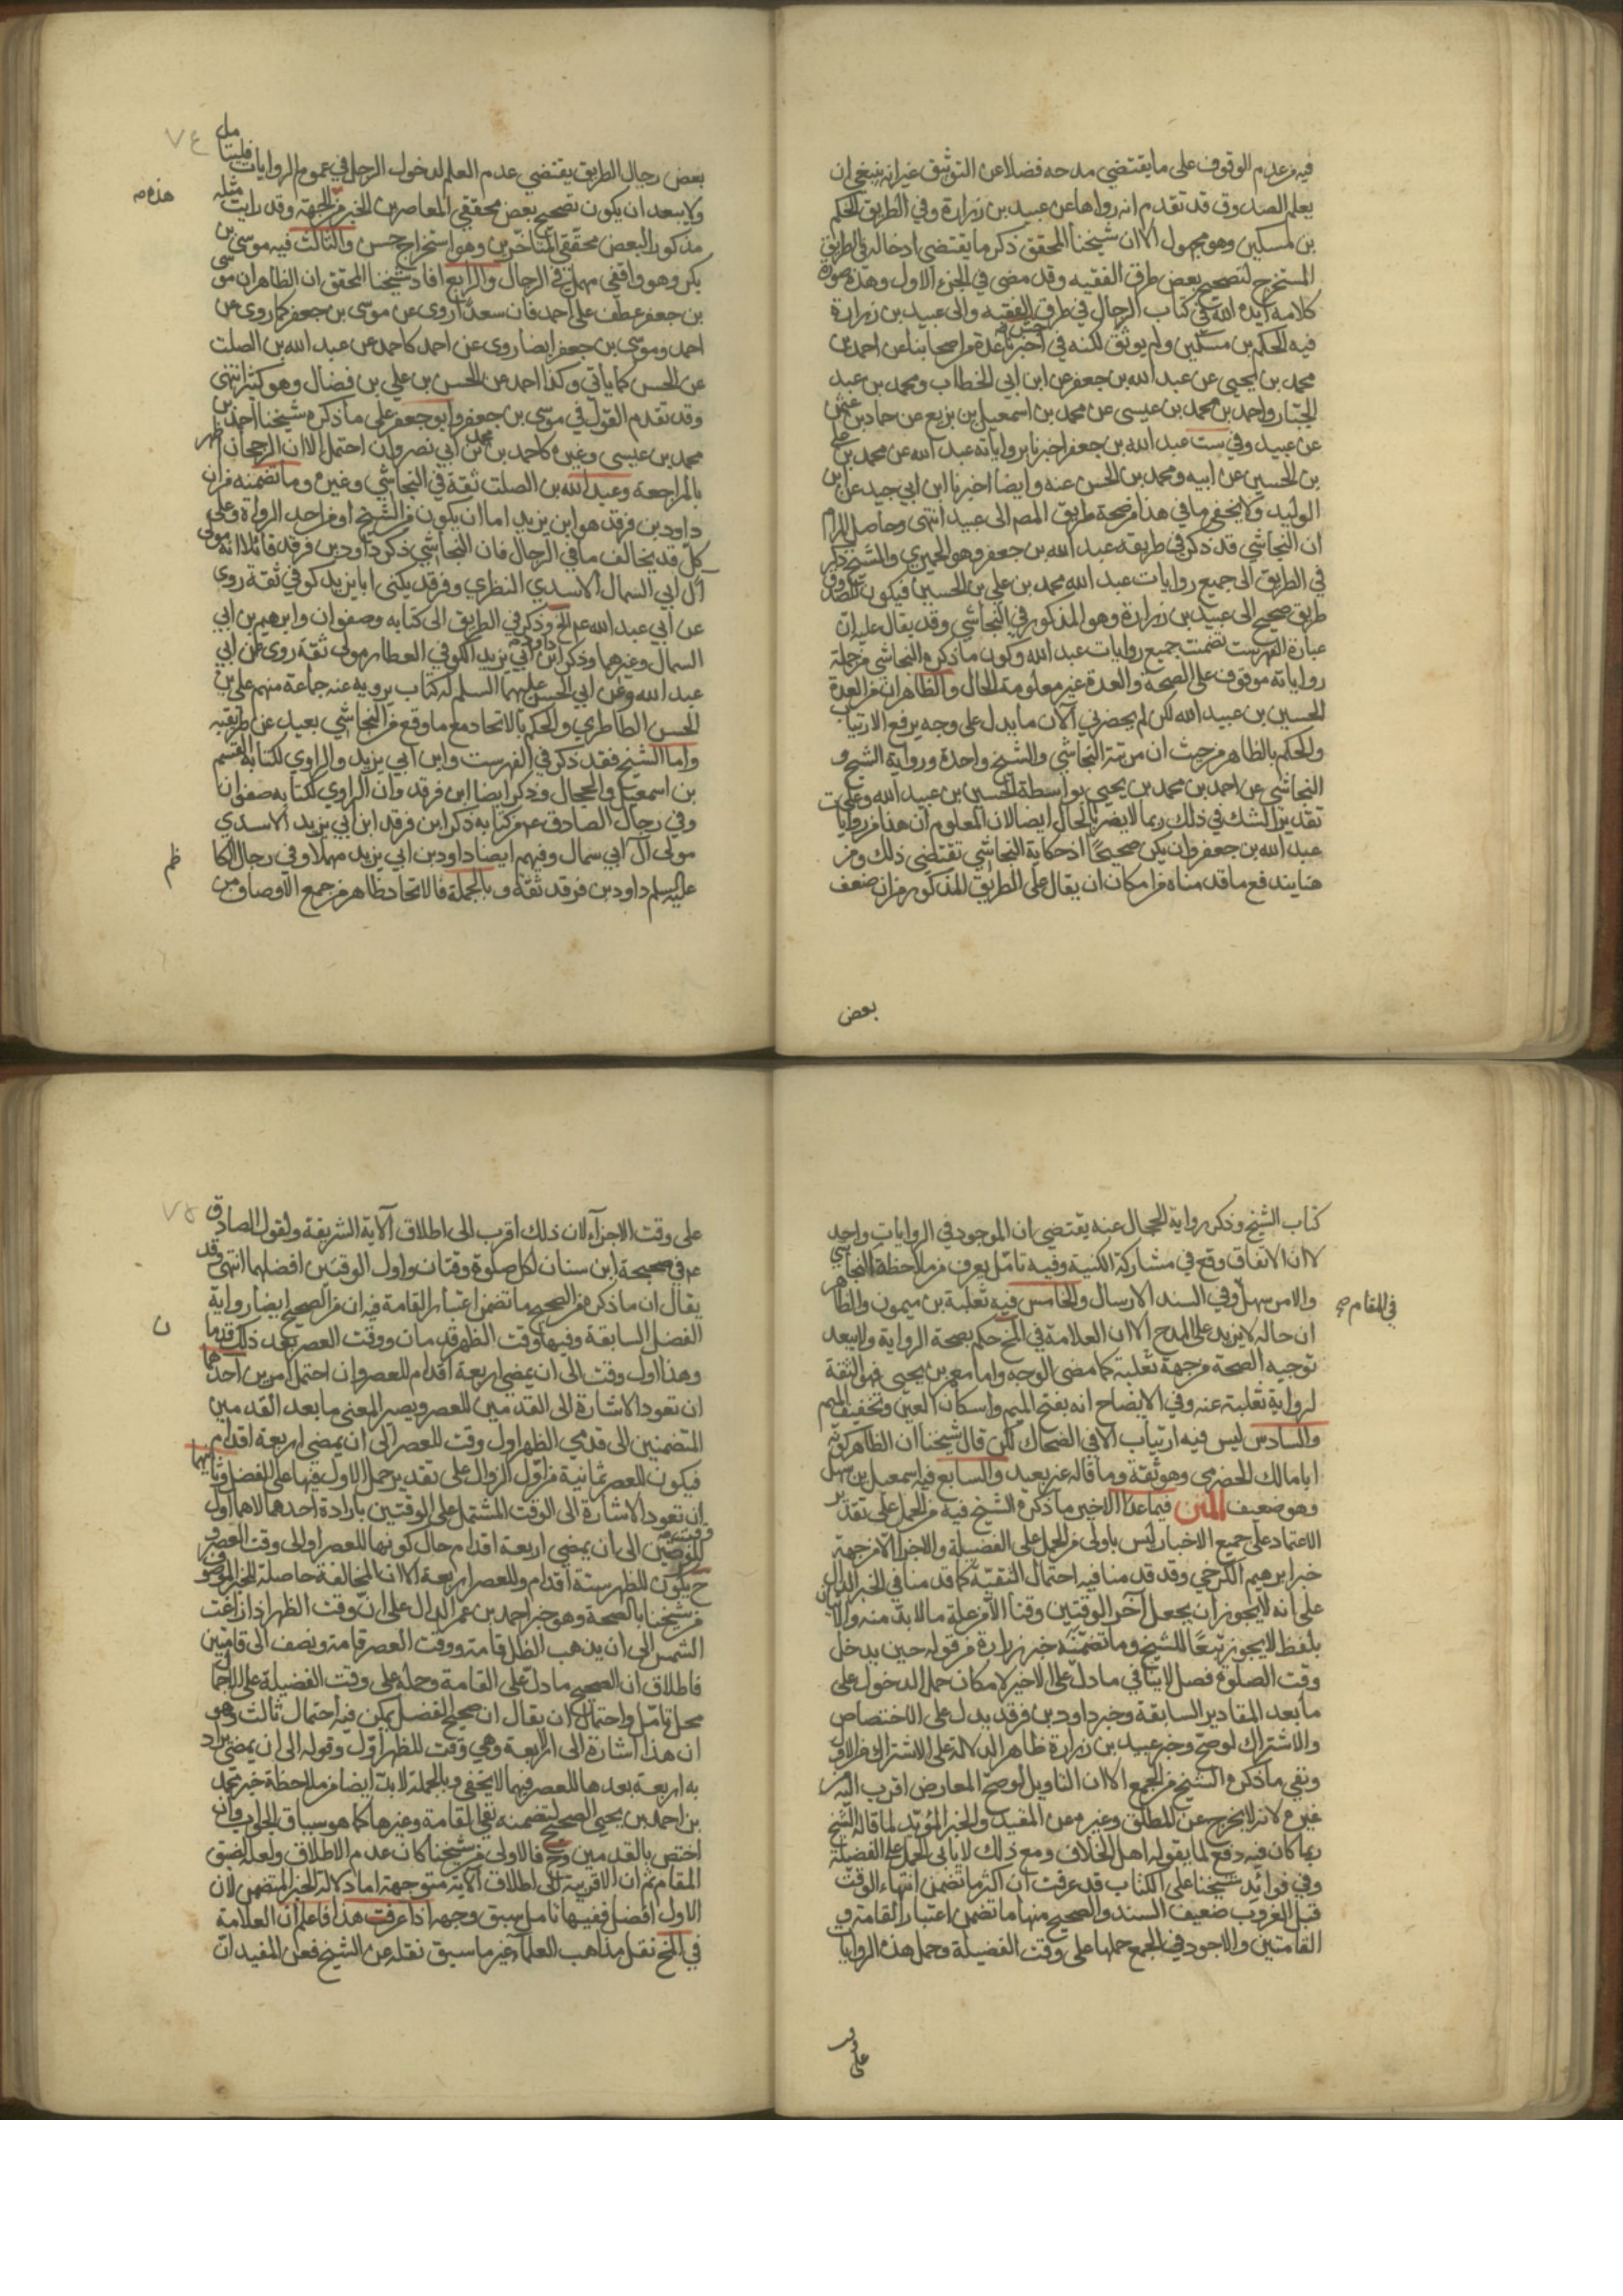 فيه من عدم الوقوف على ما يقتضي مدحه فضلا عن التوثيق غير انه ينبغي ان
يعلم الصدوق قد تقدم انه رواها عن عبيد بن زرارة وفي الطريق الحكم
بن مسكين وهو مجهول الا ان شيخنا المحقق ذكر ما يقتضي ادخاله في الطريق
المستخرج لتصحيح بعض طرق الفقيه وقد مضى في الجزء الاول وهذه صورة
كلامه ايده الله في كتاب الرجال في طرق الفقيه والى عبيد بن زرارة
فيه الحكم بن مسكين ولم يوثق لكنه في اخبرنا عدة من اصحابنا عن احمد بن
محمد بن يحيى عن عبد الله بن جعفر عن ابن ابي الخطاب ومحمد بن عبد
الجبار واحمد بن محمد بن عيسى عن محمد بن اسمعيل بن بزيع عن حماد بن عثمن
عن عبيد وفي ست عبد الله بن جعفر اخبرنا برواياته عبد الله عن محمد بن علي
بن الحسين عن ابيه ومحمد بن الحسن عنه وايضا اخبرنا ابن ابي جيد عن ابن
الوليد ولا يخفى ما في هذا من صحة طريق المص الى عبيد انتهى وحاصل المرام
ان النجاشي قد ذكر في طريقه عبد الله بن جعفر وهو الحميري والشيخ ذكر
في الطريق الى جميع روايات عبد الله محمد بن علي بن الحسين فيكون للصدوق
طريق صحيح الى عبيد بن زرارة وهو المذكور في النجاشي وقد يقال عليه ان
عبارة الفهرست تضمنت جميع روايات عبد الله وكون ما ذكره النجاشي من جملة
رواياته موقوف على الصحة والعدة غير معلومة الحال والظاهر ان من العدة
الحسين بن عبيد الله لكن لم يحضرني الآن ما يدل على وجه يرفع الارتياب
والحكم بالظاهر من حيث ان مرتبة النجاشي والشيخ واحدة ورواية الشيخ و
النجاشي عن احمد بن محمد بن يحيى بواسطة الحسين بن عبيد الله وعلى
تقدير الشك في ذلك ربما لا يضر بالحال ايضا لان المعلوم ان هذا من روايات
عبد الله بن جعفر وان يكن صحيحا اذ حكاية النجاشي تقتضي ذلك ومن
هنا يندفع ما قدمناه من امكان ان يقال على الطريق المذكور من ان ضعف
بعض
٧٤
بعض رجال الطريق يقتضي عدم العلم لدخول الرجل في عموم الروايات فليتامل
ولا يبعد ان يكون تصحيح بعض محققي المعاصرين الخبر من الجهة وقد رايت مثله
هذه صه
مذكورا لبعض محققي المتاخرين وهو استخراج حسن والثالث فيه موسى بن
بكر وهو واقفي مهمل في الرجال والرابع افاد شيخنا المحقق ان الظاهر ان موسى
بن جعفر عطف على احمد فان سعدا روى عن موسى بن جعفر كما روى عن
احمد وموسى بن جعفر ايضا روى عن احمد كاحمد عن عبد الله بن الصلت
عن الحسن كما ياتي وكذا احمد عن الحسن بن علي بن فضال وهو كثير انتهى
وقد تقدم القول في موسى بن جعفر وابو جعفر على ما ذكره شيخنا احمد بن
محمد بن عيسى وغيره كاحمد بن محمد بن ابي نصر وان احتمل الا ان الرجحان ظهر
بالمراجعة وعبد الله بن الصلت ثقة في النجاشي وغيره وما تضمنه من ان
داود بن فرقد هو ابن يزيد اما ان يكون من الشيخ او من احد الرواة وعلى
كل قد يخالف ما في الرجال فان النجاشي ذكر داود بن فرقد قائلا انه مولى
آل ابي السمال الاسدي النظري وفرقد يكنى ابا يزيد كوفي ثقة روى
عن ابي عبد الله ع الخ وذكر في الطريق الى كتابه وصفوان وابرهيم بن ابي
السمال وغيرهما وذكر داود بن ابي يزيد الكوفي العطار مولى ثقة روى عن ابي
عبد الله وعن ابي الحسن عليهما السلم له كتاب يرويه عنه جماعة منهم علي بن
الحسن الطاطري والحكم بالاتحاد مع ما وقع من النجاشي بعيد عن طريقته
واما الشيخ فقد ذكر في الفهرست وابن ابي يزيد والراوي لكتابه القسم
بن اسمعيل والحجال وذكر ايضا ابن فرقد وان الراوي لكتابه صفوان
وفي رجال الصادق ع من كتابه ذكر ابن فرقد ابن ابي يزيد الاسدي
مولى آل ابي سمال وفيهم ايضا داود بن ابي يزيد مهملا وفي رجال الكا
ظم
عليه السلم داود بن فرقد ثقة وبالجملة فالاتحاد ظاهر من جمع الاوصاف من
كتاب الشيخ وذكر رواية الحجال عنه يقتضي ان الموجود في الروايات واحد
لا ان الاتفاق وقع في مشاركة الكنية وفيه تامل يعرف من ملاحظة النجاشي
والامر سهل وفي السند الارسال والخامس فيه ثعلبة بن ميمون والظاهر
في المقام صح
ان حاله لا يزيد على المدح الا ان العلامة في المخ حكم بصحة الرواية ولا يبعد
توجيه الصحة من جهة ثعلبة كما مضى الوجه واما معمر بن يحيى فهو الثقة
لرواية ثعلبة عنه وفي الايضاح انه بفتح الميم واسكان العين وتخفيف الميم
والسادس ليس فيه ارتياب الا في الضحاك لكن قال شيخنا ان الظاهر كونه
ابا مالك الحضرمي وهو ثقة وما قاله غير بعيد والسابع فيه اسمعيل بن سهل
وهو ضعيف المتن فيما عدا الاخير ما ذكره الشيخ فيه من الحمل على تقدير
الاعتماد على جميع الاخبار ليس باولى من الحمل على الفضيلة والاجزا الا من جهة
خبر ابرهيم الكرخي وقد قدمنا فيه احتمال التقية كما قدمنا في الخبر الدال
على انه لا يجوز ان يجعل آخر الوقتين وقتا الا من علة ما لا بد منه والاتيان
بلفظ لا يجوز تبعا للشيخ وما تضمنه خبر زرارة من قوله حين يدخل
وقت الصلوة فصل لا ينافي ما دل على الاخير لامكان حمل الدخول على
ما بعد المقادير السابقة وخبر داود بن فرقد يدل على الاختصاص
والاشتراك لو صح وخبر عبيد بن زرارة ظاهر الدلالة على الاشتراك من الاول
ونفى ما ذكره الشيخ من الجمع الا ان التاويل لو صح المعارض اقرب اليه من
غيره لانه لا يخرج عن المطلق وغيره عن المقيد والخبر المؤيد لما قاله الشيخ
ربما كان فيه دفع لما يقوله اهل الخلاف ومع ذلك لا يابى الحمل على الفضيلة
وفي فوائد شيخنا على الكتاب قد عرفت ان اكثر ما تضمن انتهاء الوقت
قبل الغروب ضعيف السند والصحيح منها ما تضمن اعتبار القامة و
القامتين والاجود في الجمع حملها على وقت الفضيلة وحمل هذه الروايات
على وقت
٧٥
على وقت الاجزآء لان ذلك اقرب الى اطلاق الآية الشريفة ولقول الصادق
ع في صحيحة ابن سنان لكل صلوة وقتان واول الوقتين افضلهما انتهى وقد
يقال ان ما ذكره من الصحيح ما تضمن اعتبار القامة فيه ان من الصحيح ايضا رواية
ن
الفضل السابقة وفيها وقت الظهر قدمان ووقت العصر بعد ذلك قدما
وهذا اول وقت الى ان يمضي اربعة اقدام للعصر وان احتمل امرين احدهما
ان تعود الاشارة الى القدمين للعصر ويصير المعنى ما بعد القدمين
المتضمنين الى قدمي الظهر اول وقت للعصر الى ان يمضي اربعة اقدام
فيكون للعصر ثمانية من اول الزوال على تقدير حمل الاول فيها على الفضل وثانيهما
ان تعود الاشارة الى الوقت المشتمل على الوقتين بارادة احدهما لا هما اول
الى ان يمضي اربعة اقدام حال كونها للعصر او الى وقت العصر و
ح يكون للظهر ستة اقدام وللعصر اربعة الا ان المخالفة حاصلة للخبر الموصوف
من شيخنا بالصحة وهو خبر احمد بن عمر الدال على ان وقت الظهر اذا زاغت
الشمس الى ان يذهب الظل قامة ووقت العصر قامة ونصف الى قامتين
فاطلاق ان الصحيح ما دل على القامة وحمله على وقت الفضيلة على الاجمال
محل تامل واحتمال ان يقال ان صحيح الفضل يمكن فيه احتمال ثالث وهو
ان هذا اشارة الى الاربعة وهي وقت للظهر اول وقوله الى ان يمضي يراد
به اربعة بعدها للعصر فيهما لا يخفى وبالجملة لا بد ايضا من ملاحظة خبر محمد
بن احمد بن يحيى الصحيح لتضمنه نفي القامة وغيرها كما هو سياق الجواب وان
اختص بالقدمين وح فالاولى من شيخنا كان عدم الاطلاق ولعله لضيق
المقام ثم ان الاقربية الى اطلاق الآية متوجهة اما دلالة الخبر المتضمن لان
الاول افضل ففيها تامل سبق وجهه اذا عرفت هذا فاعلم ان العلامة
في المخ نقل مذاهب العلمآء غير ما سبق نقله عن الشيخ فعن المفيد ان